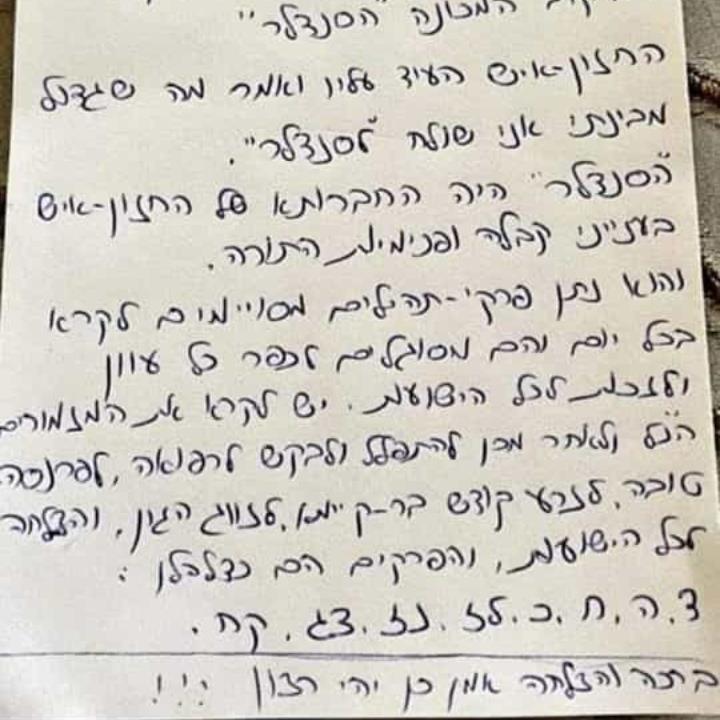 המכונה "הסנדלר"
החזון-איש העיד עליו ואמר מה שגדול
מבינתי אני שולח "לסנדלר".
"הסנדלר" היה החברותא של החזון-איש
בענייני קבלה ופנימיות התורה.
והוא נתן פרקי-תהילים מסויימים לקרא
בכל יום והם מסוגלים לכפר כל עוון
ולזכות לכל הישועות. יש לקרא את המזמורים
הנ"ל ולאחר מכן להתפלל ולבקש לרפואה, לפרנסה
טובה, לזרע קודש בר-קיימא, לזווג הגון, והצלחה
לכל הישועות, והפרקים הם כדלהלן :
ד, ה, ח, כ, לז, נז, צג, קח.
ברכה והצלחה אמן כן יהי רצון !!!